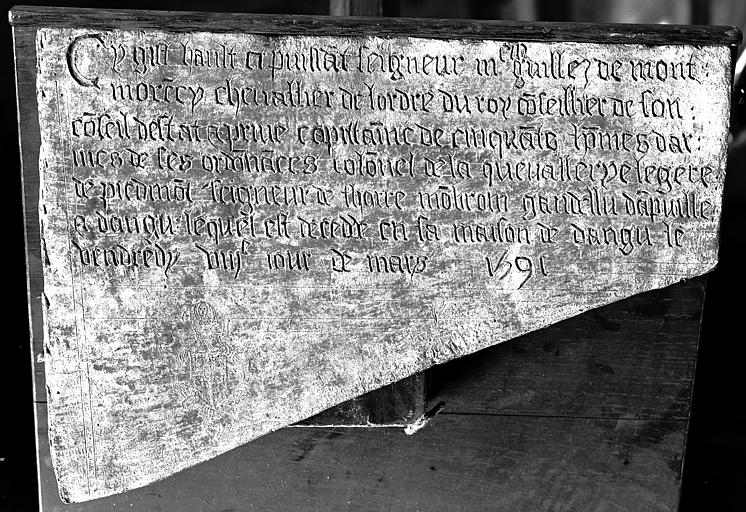 Cy gist hault et puissāt seigneur mess guillez de mont
morēcy chevallier de lordre du roy cōseillier de son
cōseil destat et prive capittaine de cinquāte hōmes dar
mes de ses ordōnāces colōnnel de la quevallerye legere
de piedmōt seigneur de thorre
a dangu lequel est decedde en sa maison de dangu le
vendredy viijᵉ iour de mars 1591